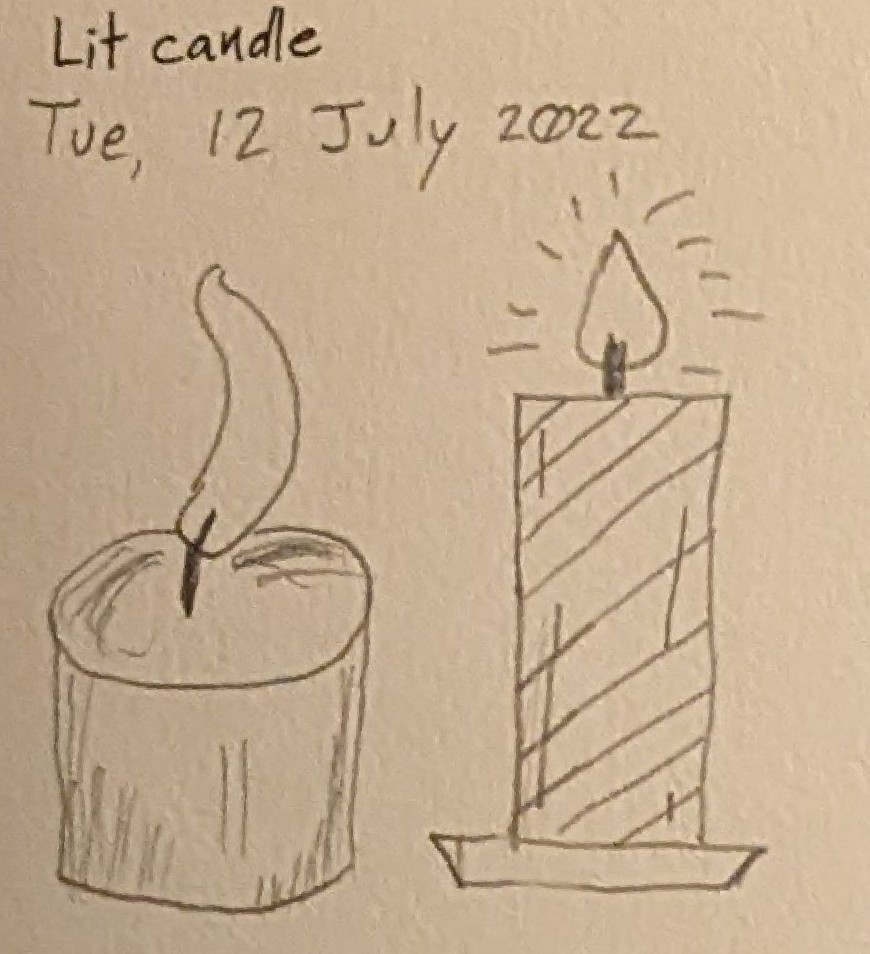 Lit candle
Tue, 12 July 2022